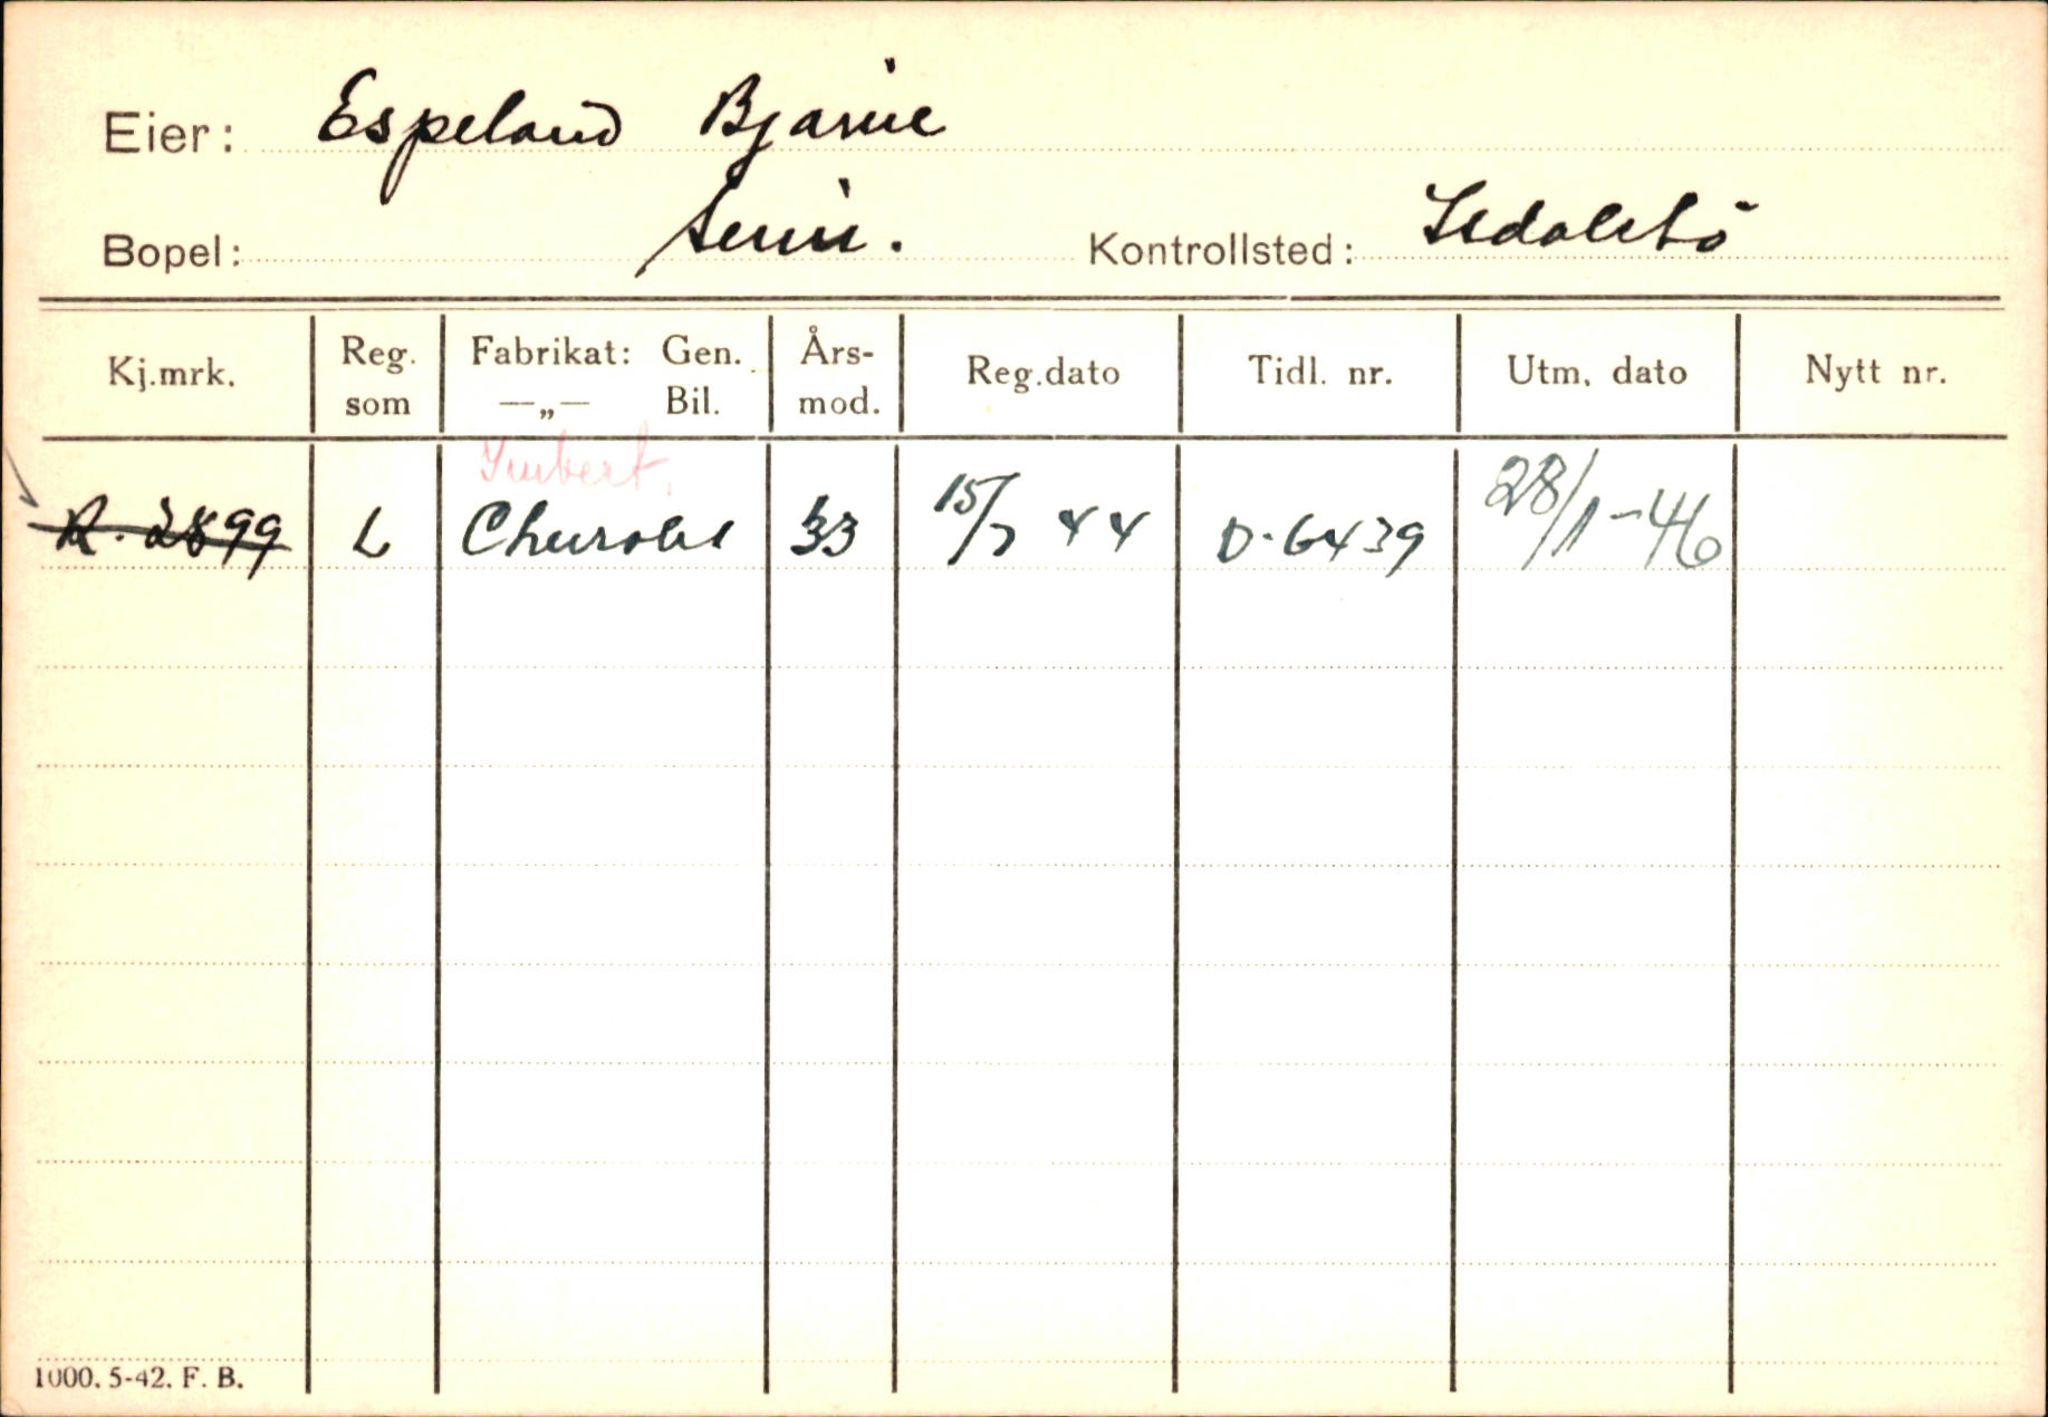 Eier: Espeland Bjarne
Bopel: Kontrollsted: Isdalstö
Kj.mrk. Reg. som Fabrikat: Gen. —„— Bil. Års-mod. Reg.dato Tidl. nr. Utm. dato Nytt nr.
Imbert.
R. 2899 L Chevrolet 33 15/7 44 D-6439 28/1-46
1000. 5-42. F. B.